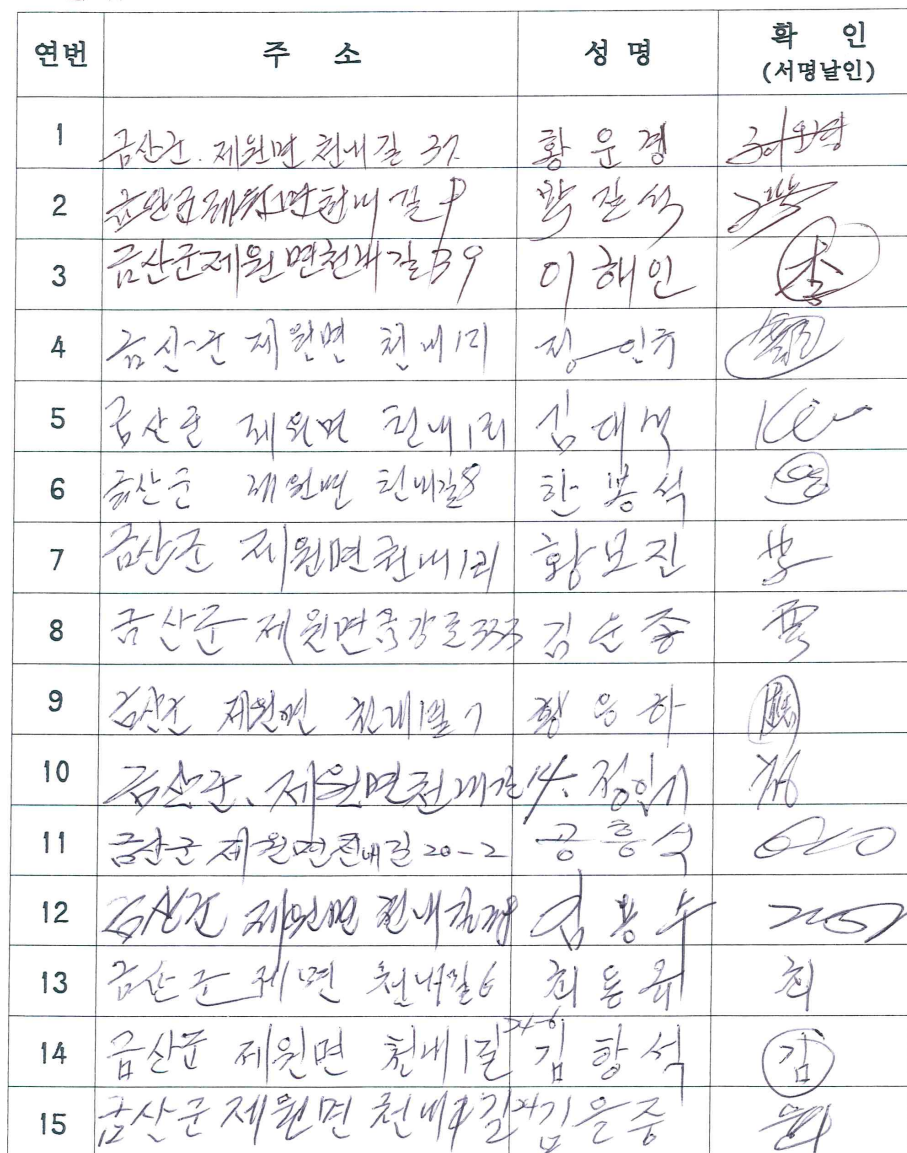 연번 주 소 성 명 확 인
(서명날인)
1 금산군. 제원면 천내길 37 황운경
2 금산군제원면천내길 9 박길석
3 금산군제원면천내길 39 이해인 李
4 금산군 제원면 천내1리 정인
5 금산군 제원면 천내1리 김대석
6 금산군 제원면 천내길8 한봉석
7 금산군 제원면천내1리 황보진
8 금산군 제원면금강로333 김순종
9 금산군 제원면 천내1길 7 황응하
10 금산군. 제원면천내길14. 정인기
11 금산군 제원면천내길 20-2 공흥석
12 금산군 제원면 천내 김용수
13 금산군 제면 천내길6 최동욱 최
14 금산군 제원면 천내1길 24-6 김항석 김
15 금산군 제원면 천내1길 24 김을중